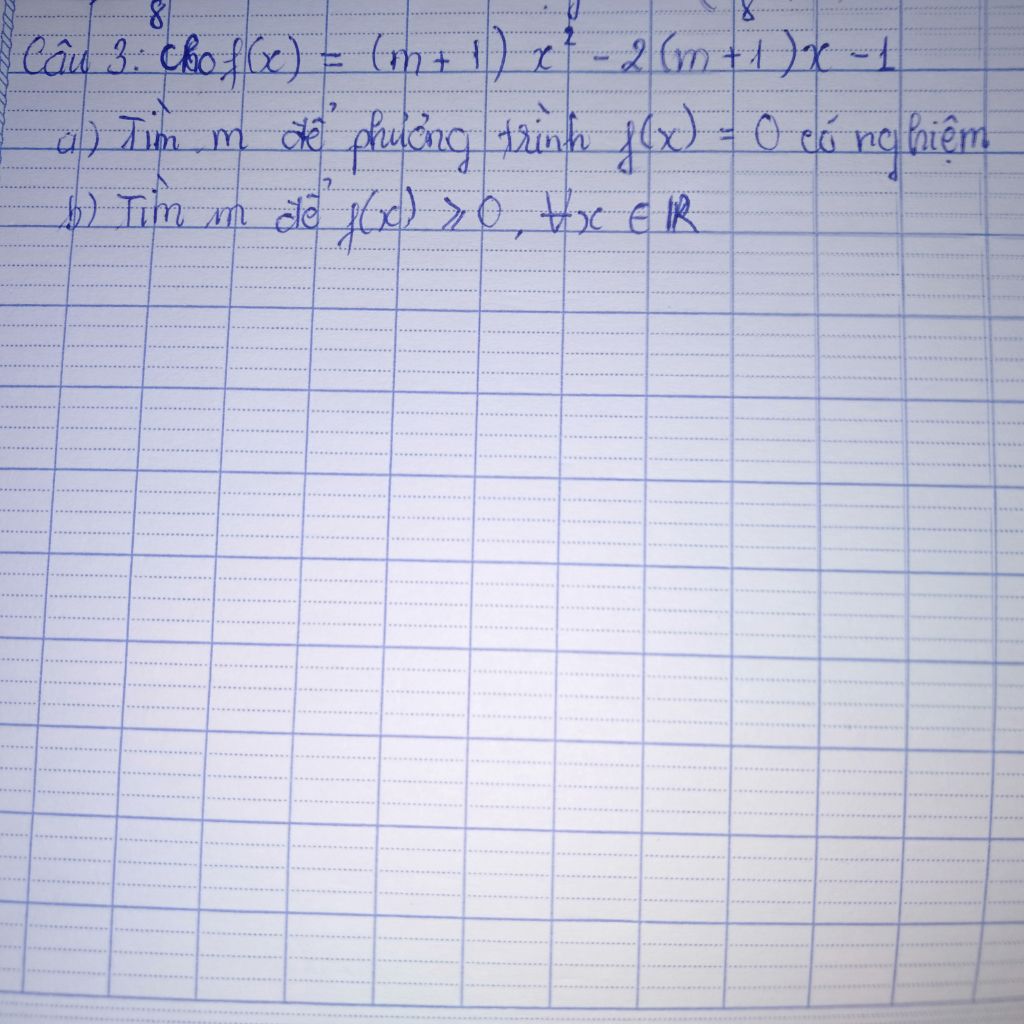 Câu 3: Cho f(x) = (m + 1) x² - 2(m + 1)x - 1
a) Tìm m để phương trình f(x) = 0 có nghiệm
b) Tìm m để f(x) ⩾ 0, ∀x ∈ ℝ